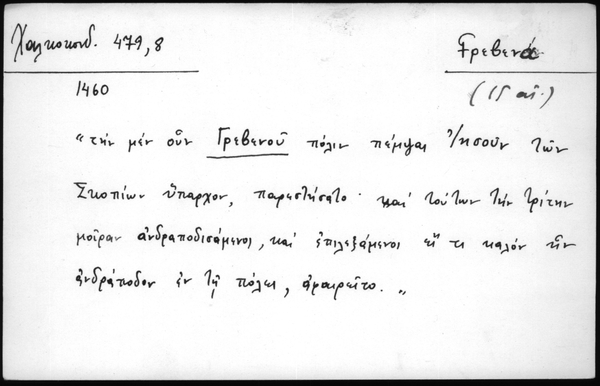 Χαλκοκονδ. 479,8
Γρεβενά
1460
(15 αἰ.)
"τὴν μὲν οὖν Γρεβενοῦ πόλιν πέμψαι Ἰησοῦν τῶν
Σκοπίων ὕπαρχον, παρεστήσατο· καὶ τούτων τὴν τρίτην
μοῖραν ἀνδραποδισάμενοι, καὶ ἐπιλεξάμενοι εἴ τι καλὸν ἦν
ἀνδράποδον ἐν τῇ πόλει, ἀφαιρεῖτο."